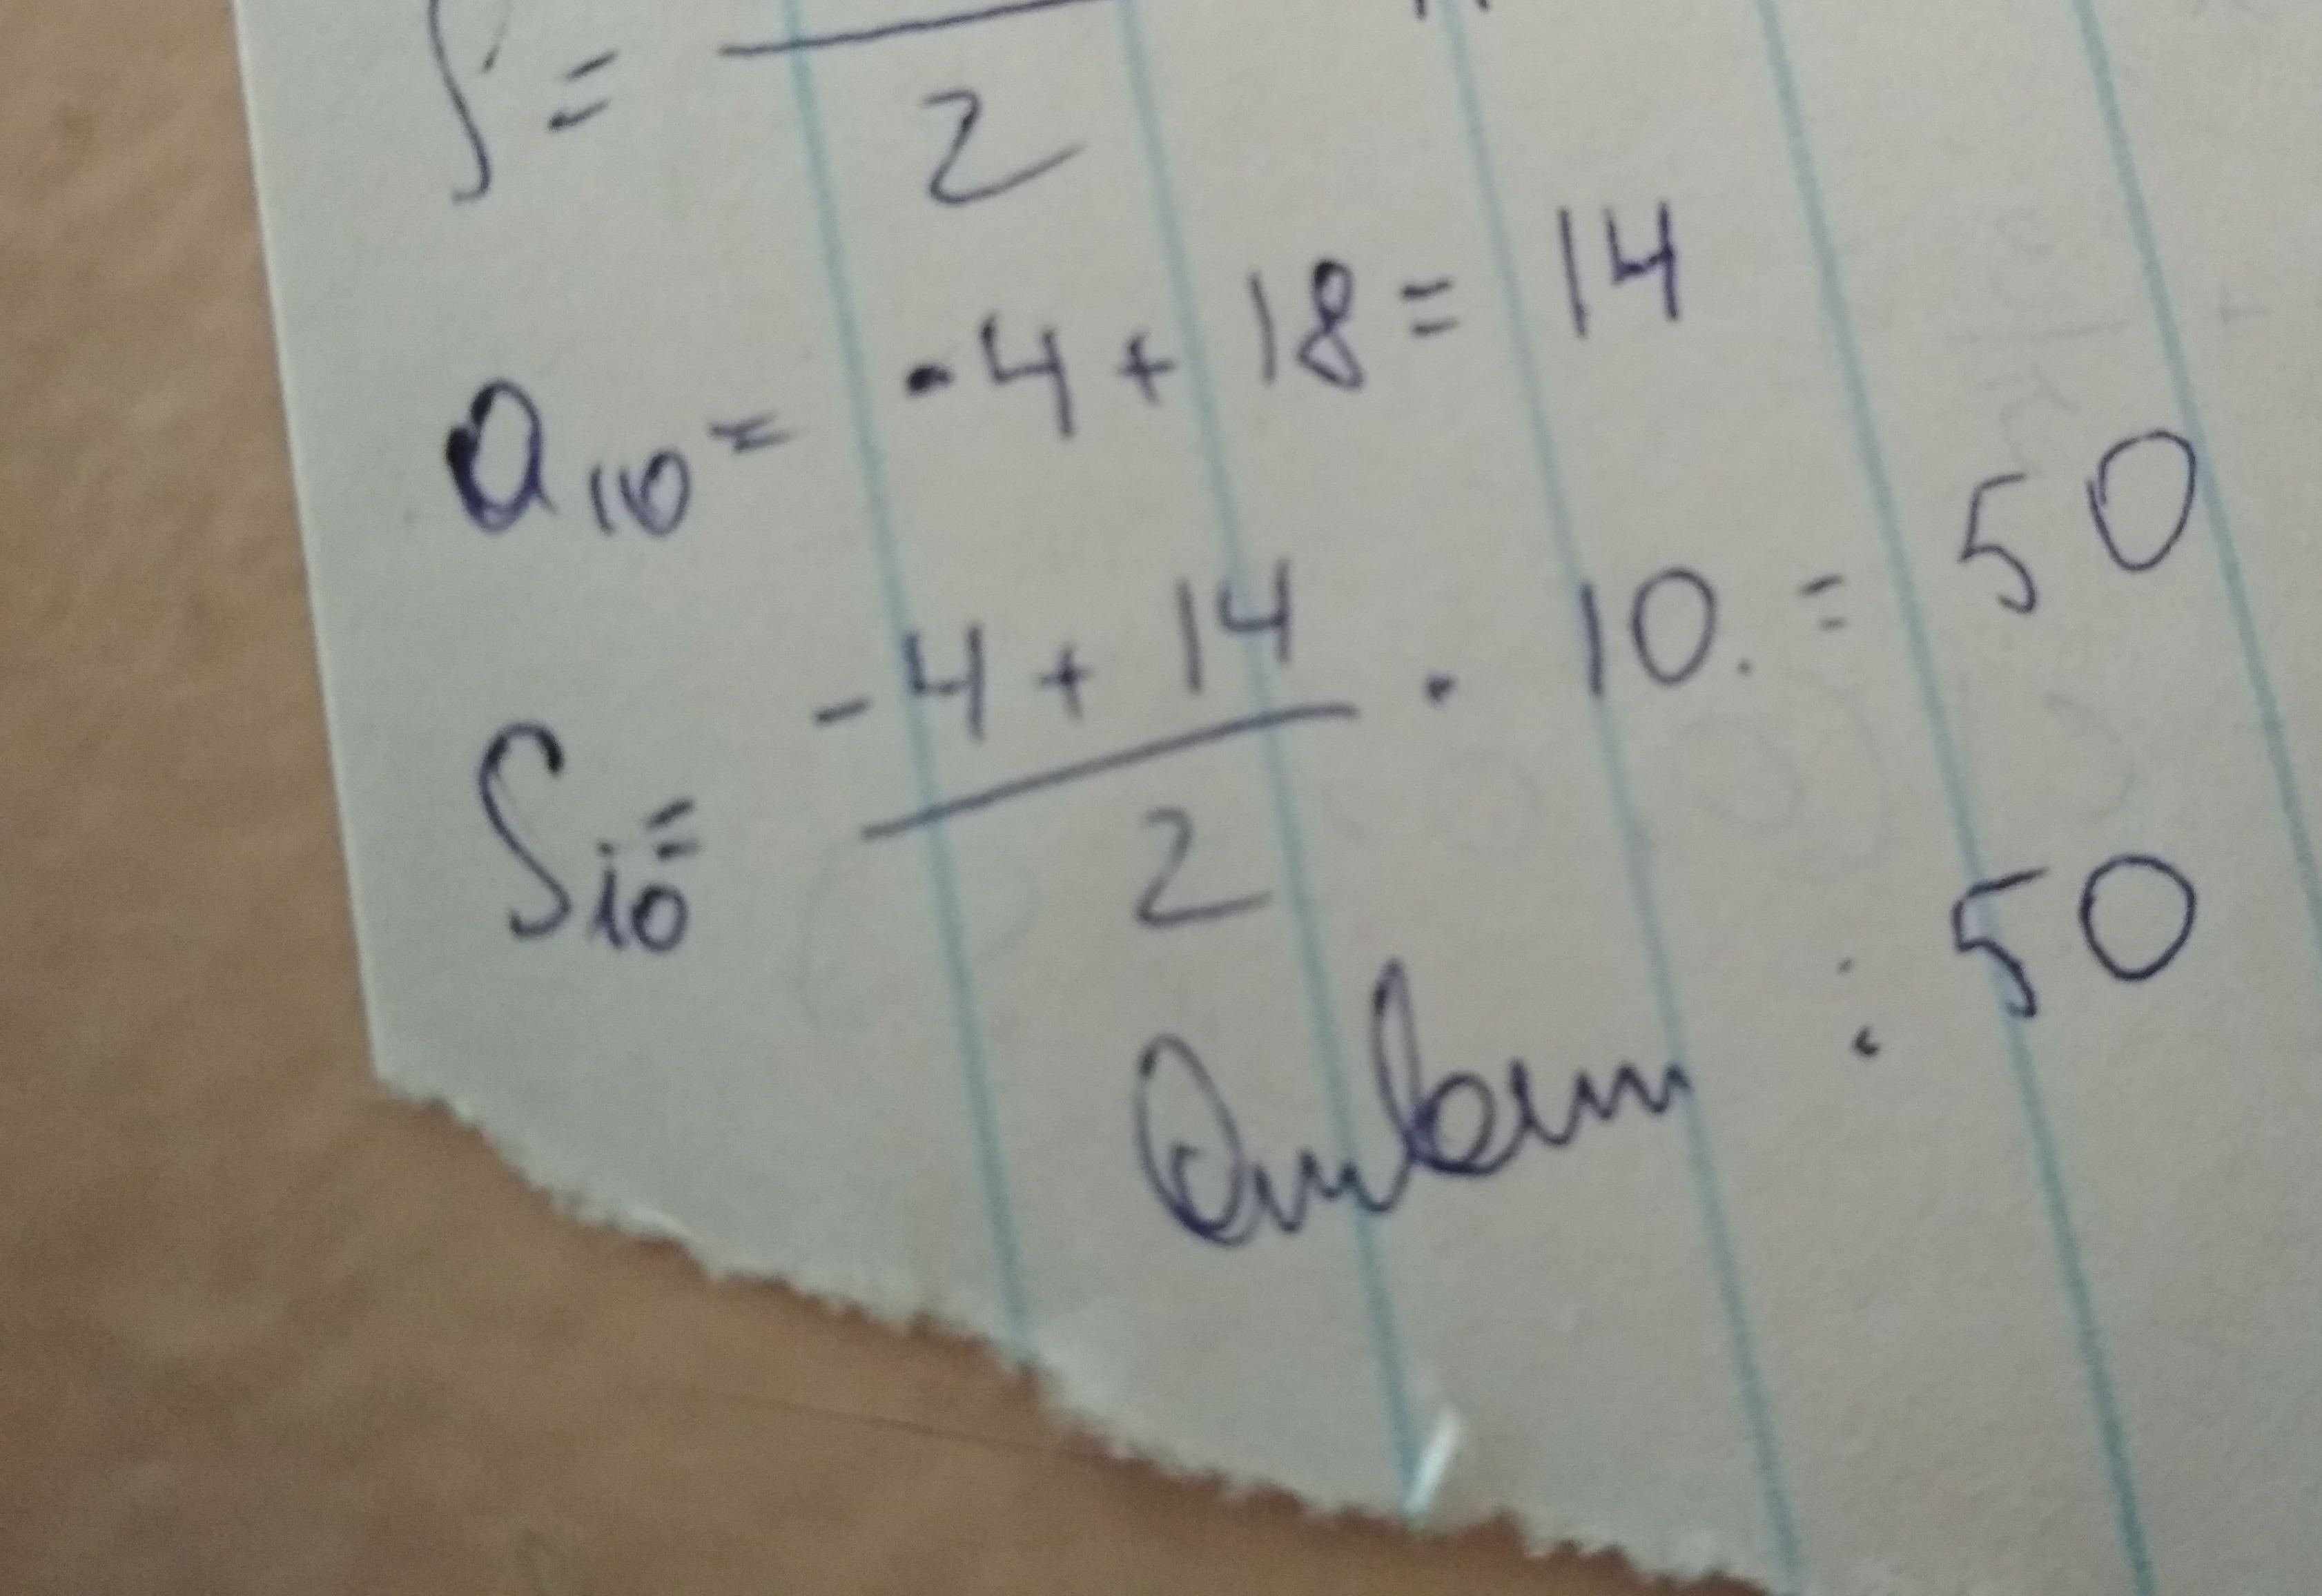 S = ― / 2
a₁₀ = -4 + 18 = 14
S₁₀ = (-4 + 14) / 2 · 10. = 50
Ответ : 50